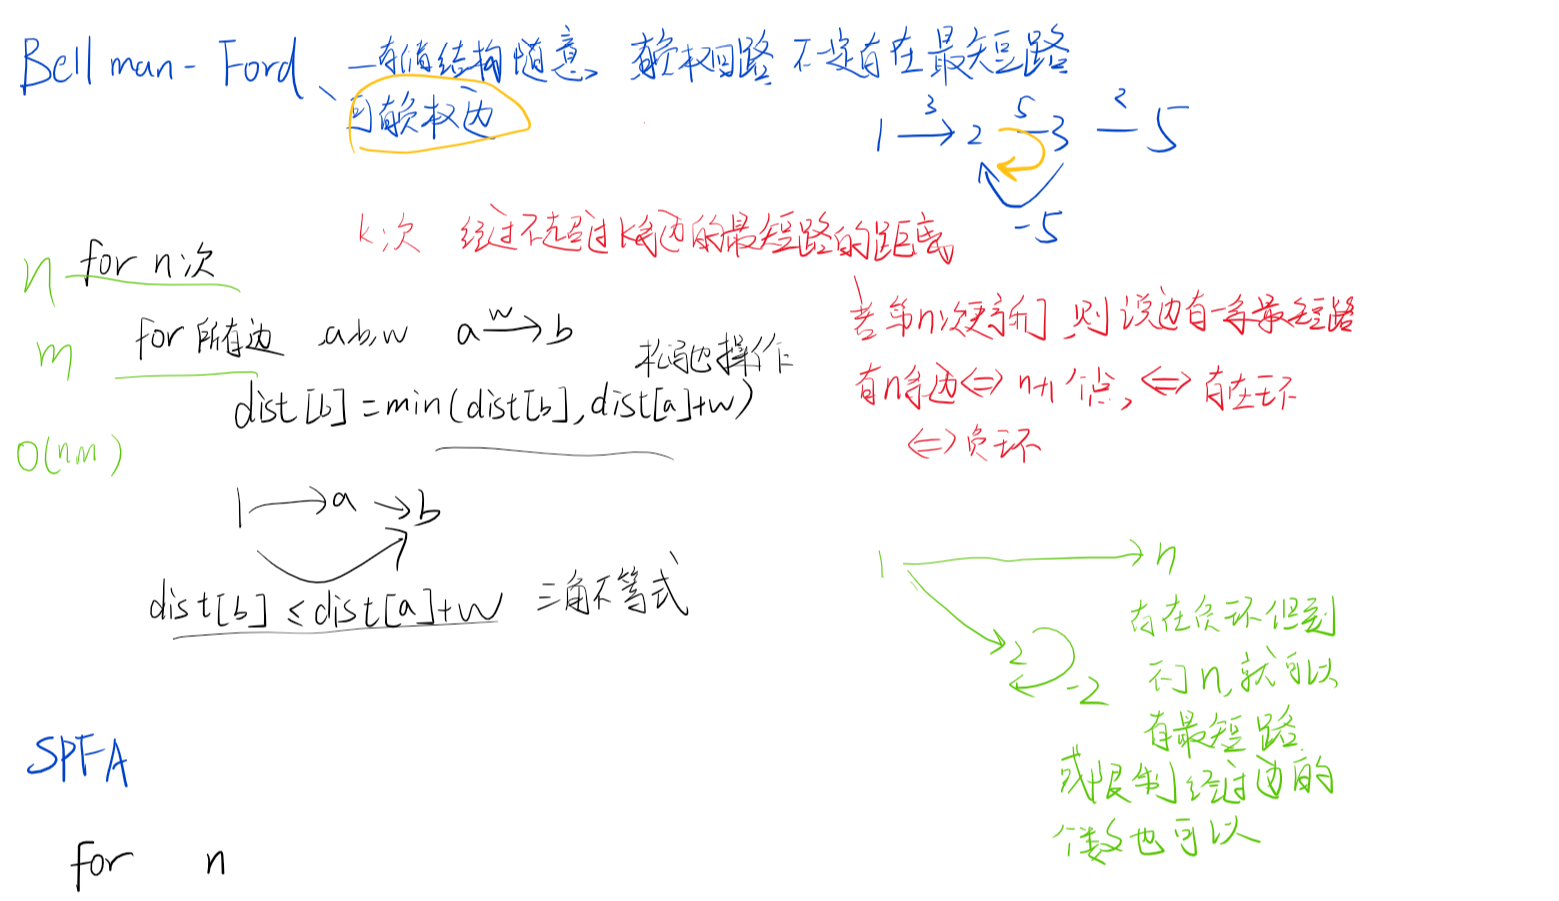 Bellman-Ford、存储结构随意、有负权回路不一定存在最短路
可有负权边
1 →3 2 5 3 2 5
-5
k次 经过不超过k条边的最短路的距离
n for n次
m for 所有边 a,b,w a w→ b
松弛操作
dist[b]=min(dist[b],dist[a]+w)
O(nm)
若第n次更新了,则说边有一条最短路
有n条边⇔n+1个点,⇔存在环
⇔负环
1→a→b
dist[b]≤dist[a]+w 三角不等式
1→n
2 -2
存在负环但到
不了n,就可以
有最短路
或限制经过边的
个数也可以
SPFA
for n